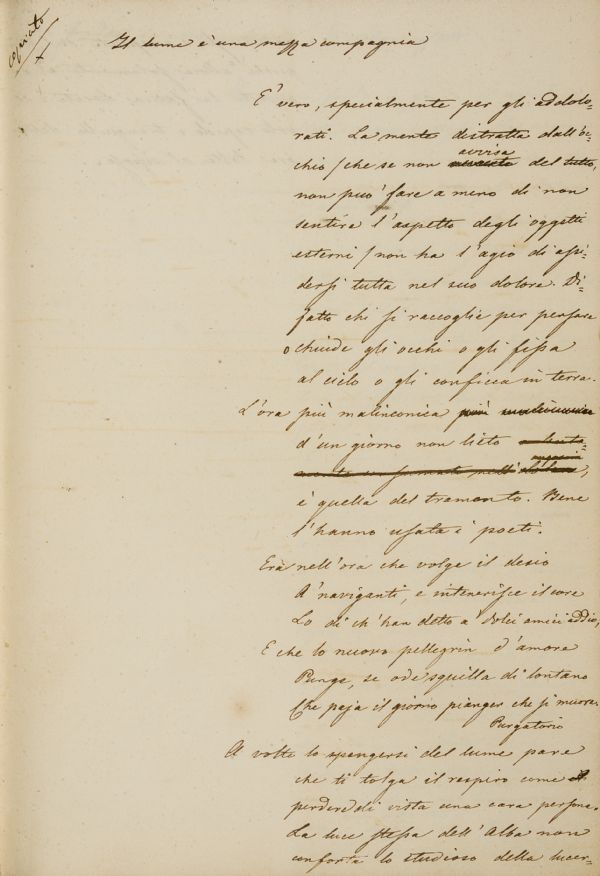 copiato
Il lume è una mezza compagnia
E' vero, specialmente per gli addolo-
rati. La mente distratta dall'oc-
avvisa
chio / che se non del tutto,
non può fare a meno di non
sentire l'aspetto degli oggetti
esterni / non ha l'agio di assi-
dersi tutta nel suo dolore. Di-
fatto chi si raccoglie per pensare
o chiude gli occhi o gli fissa
al cielo o gli conficca in terra.
L'ora più malinconica
d'un giorno non lieto
è quella del tramonto. Bene
l'hanno usata i poeti.
Era nell'ora che volge il desio
A' naviganti, e intenerisce il core
Lo dì ch'han detto a' dolci amici addio,
E che lo nuovo pellegrin d'amore
Punge, se ode squilla di lontano
Che paja il giorno pianger che si muore.
Purgatorio
A volte lo spengersi del lume pare
che ti tolga il respiro come
perdere di vista una cara persona.
La luce stessa dell'Alba non
conforta lo studioso della lucer-